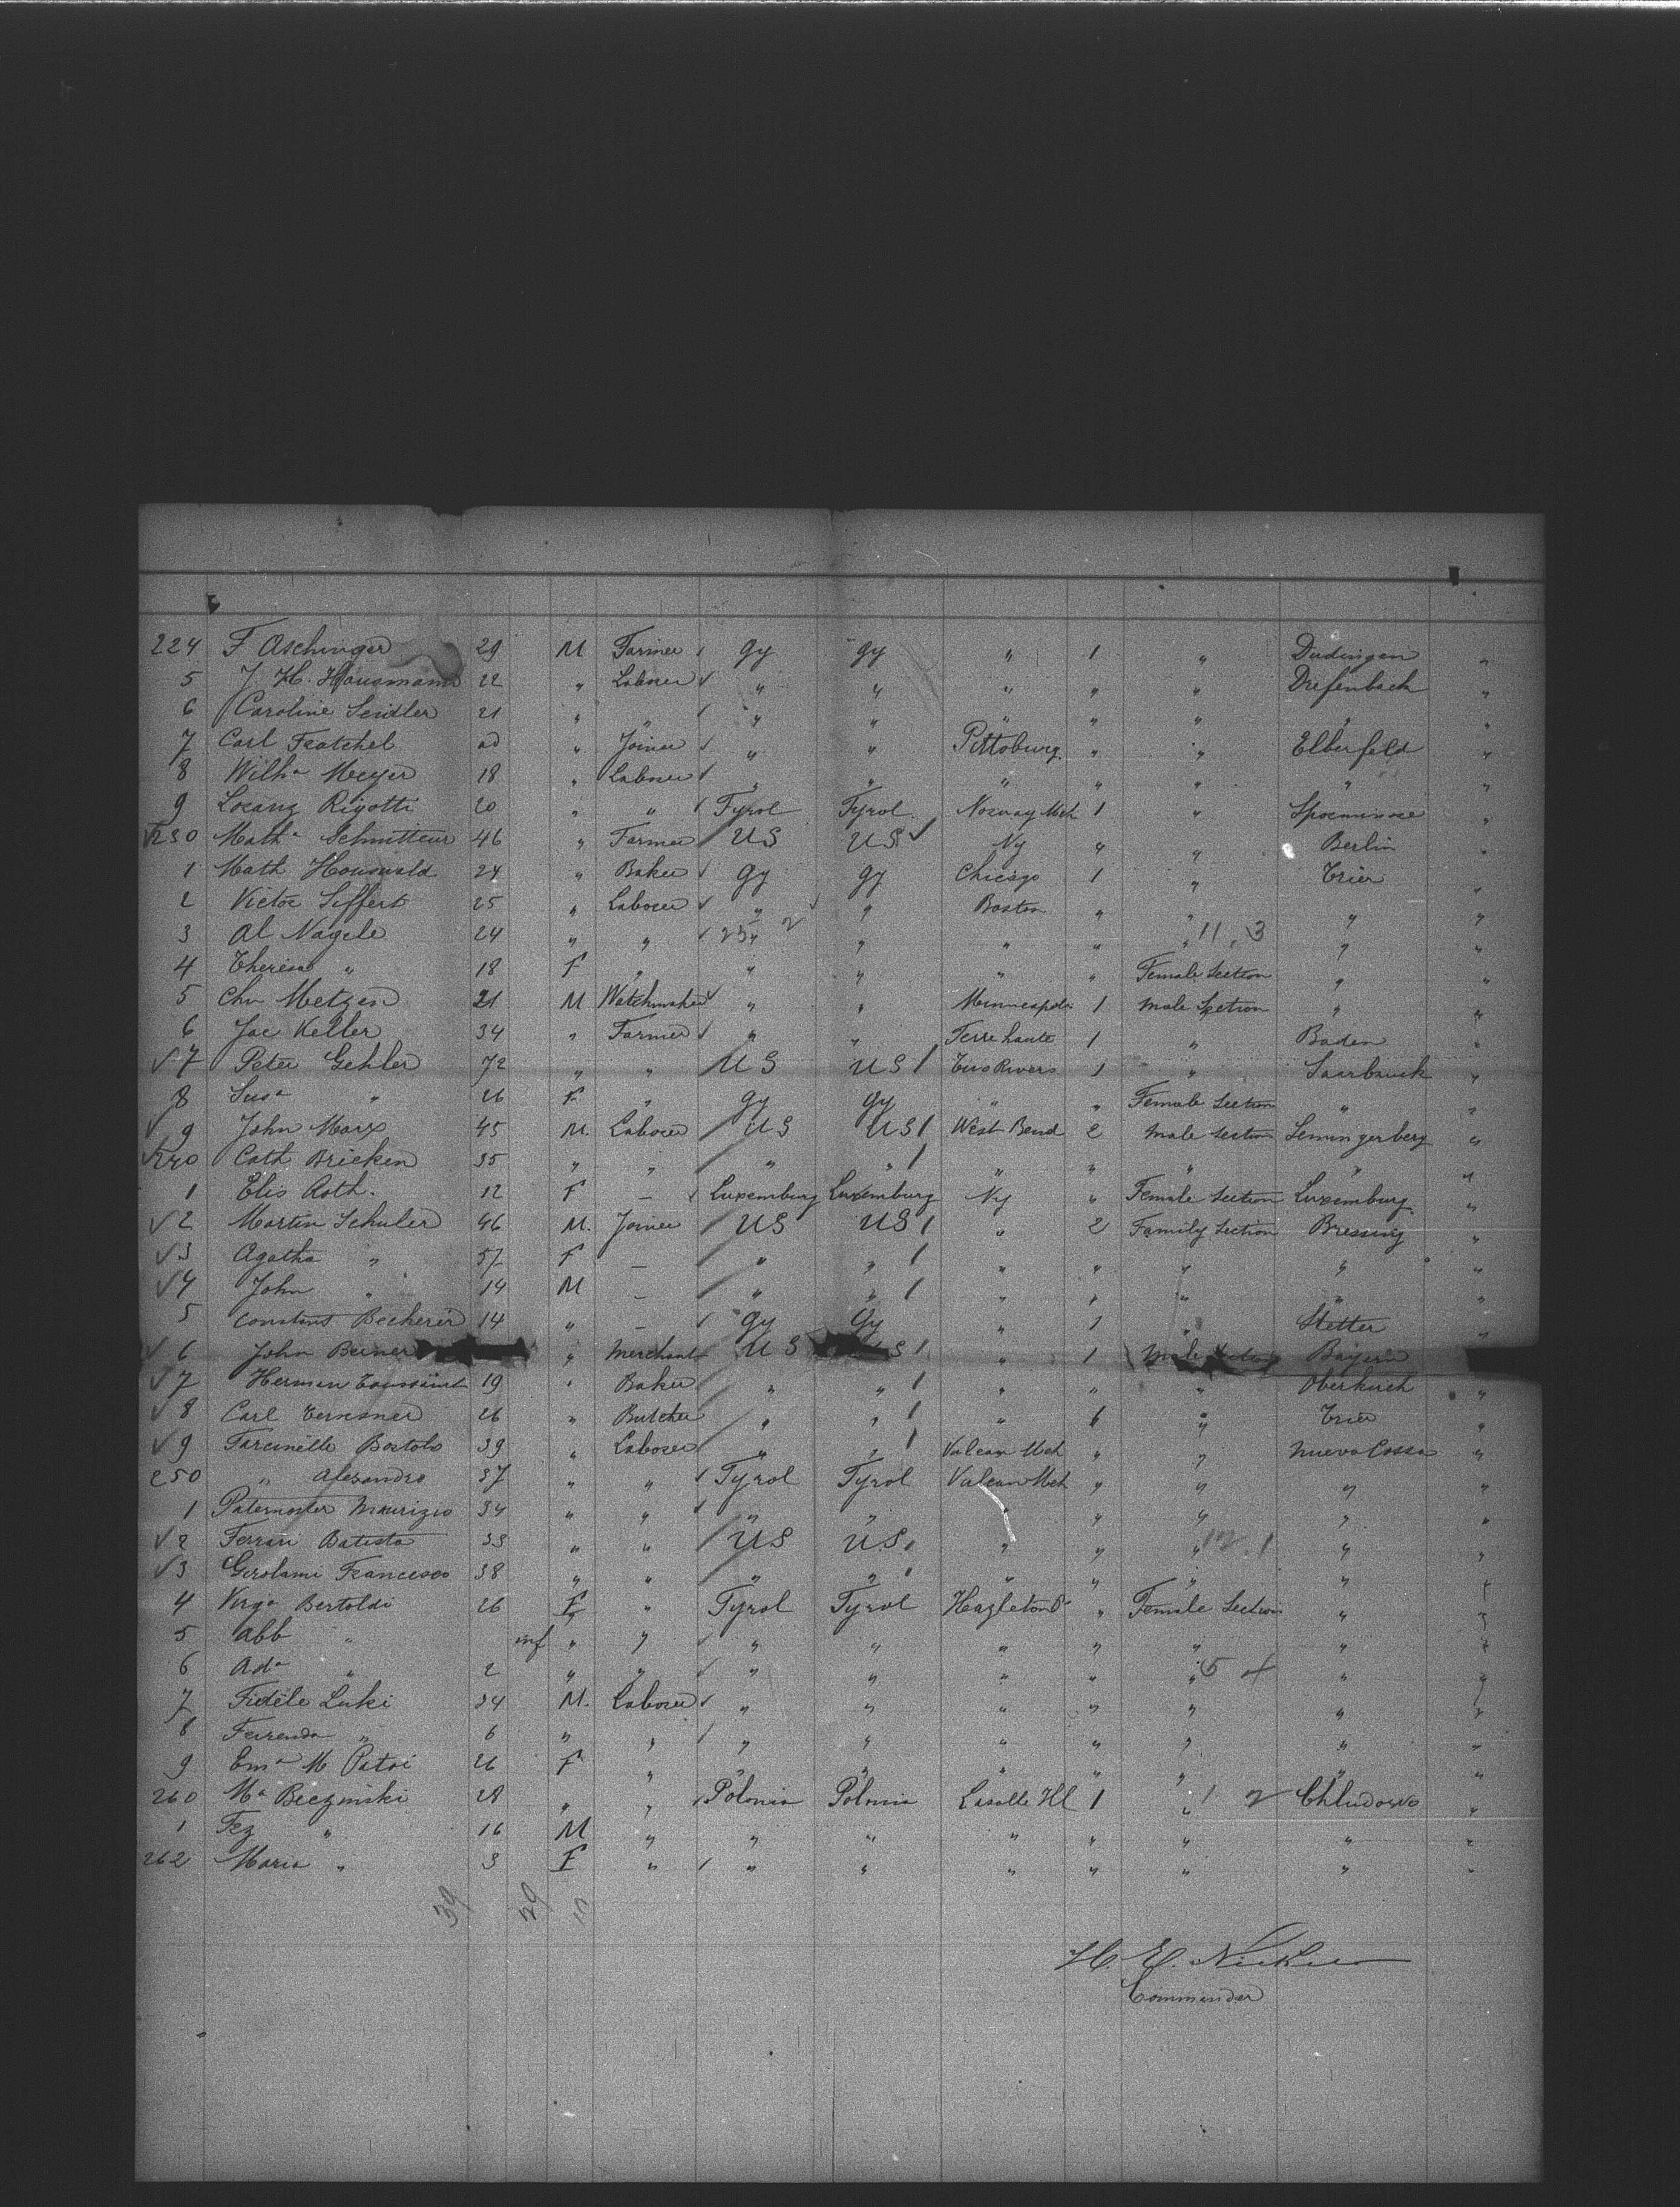 224 F Aschinger 29 M Farmer gy gy " 1 " Dudingen "
5 J H. Hausmann 22 " Laborer " " " " " Diefenbach "
6 Caroline Seidler 21 " " " " " " " " "
7 Carl Fratchel ad " Joiner " " Pittsburg. " " Elberfeld "
8 Wilhm Meyer 18 " Laborer " " " " " " "
9 Loranz Rigotti 20 " " Tyrol Tyrol Norway Mch 1 " Sporminore "
230 Math Schmitteur 46 " Farmer US US Ny " " Berlin "
1 Math Houswald 24 " Baker gy gy Chicago 1 " Trier "
2 Victor Siffert 25 " Laborer " " Boston " " " "
3 Al Nagele 24 " " " " " " " 11, 3 " "
4 Theresa " 18 F " " " " " Female Section " "
5 Chr Metzen 21 M Watchmaker " " Minneapolis 1 Male Section " "
6 Jac Keller 34 " Farmer " " Terre haute 1 " Baden "
7 Peter Gehler 72 " " US US Two Rivers 1 " Saarbruck "
8 Susa " 26 F " gy gy " " Female Section " "
9 John Marx 45 M. Laborer US US West Bend 2 Male Section Lemingerberg "
240 Cath Bricken 35 " " " " " " " " "
1 Elis Roth. 12 F — Luxemburg Luxemburg Ny " Female Section Luxemburg "
2 Martin Schuler 46 M. Joiner US US " 2 Family Section Bressing "
3 Agatha " 57 F — " " " " " " "
4 John " 14 M — " " " " " " "
5 Constans Becherer 14 " — gy Gy " 1 " Stetter "
6 John Beiner " Merchant US S " 1 Male Bayern
7 Herman Toussaint 19 " Baker " " " " " Oberkirch "
8 Carl 26 " Butcher " " 1 " Trier "
9 Farcinelle Bortolo 39 " Laborer " " Vulcan Mch " " Nuevo Cossa "
250 " Alexandro 37 " " Tyrol Tyrol Vulcan Mch " " " "
1 Paternoster Maurizio 34 " " " " " " " " "
2 Ferrari Batista 33 " " US US " " " 12. 1 " "
3 Girolami Francesco 38 " " " " " " " " "
4 Virga Bertoldi 26 F " Tyrol Tyrol Hazleton " Female Section " "
5 Abb " inf " " " " " " " " "
6 Ada " 2 " " " " " " " 5 " "
7 Fidele Luki 34 M. Laborer " " " " " " "
8 Ferrenda " 6 " " " " " " " " "
9 Ema M Patri 26 F " " " " " " " "
260 Ma Beczinski 28 " " Polonia Polonia Lasalle Ill 1 " 1 2 Chludowo "
1 Fez " 16 M " " " " " " " "
262 Maria " 3 F " " " " " " " "
39 29 10
H. E.
Commander